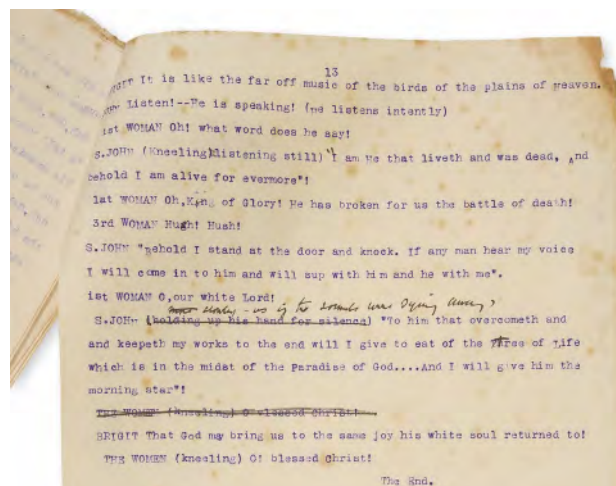 13
It is like the far off music of the birds of the plains of Heaven.
Listen!--He is speaking! (He listens intently)
1st WOMAN Oh! what word does he say!
S.JOHN (Kneeling)listening still) "I am He that liveth and was dead, And
behold I am alive for evermore"!
1at WOMAN Oh,King of Glory! He has broken for us the battle of death!
3rd WOMAN Hugh! Hush!
S.JOHN "Behold I stand at the door and knock. If any man hear my voice
I will come in to him and will sup with him and he with me".
ist WOMAN O,our white Lord!
slowly - as if the sounds were dying away)
S.JOHN (holding up his hand for silence) "To him that overcometh and
and keepeth my works to the end will I give to eat of the Tree of Life
which is in the midst of the Paradise of God....And I will give him the
morning star"!
THE WOMEN (kneeling) O blessed Christ!
BRIGIT That God may bring us to the same joy his white soul returned to!
THE WOMEN (kneeling) O! blessed Christ!
The End.